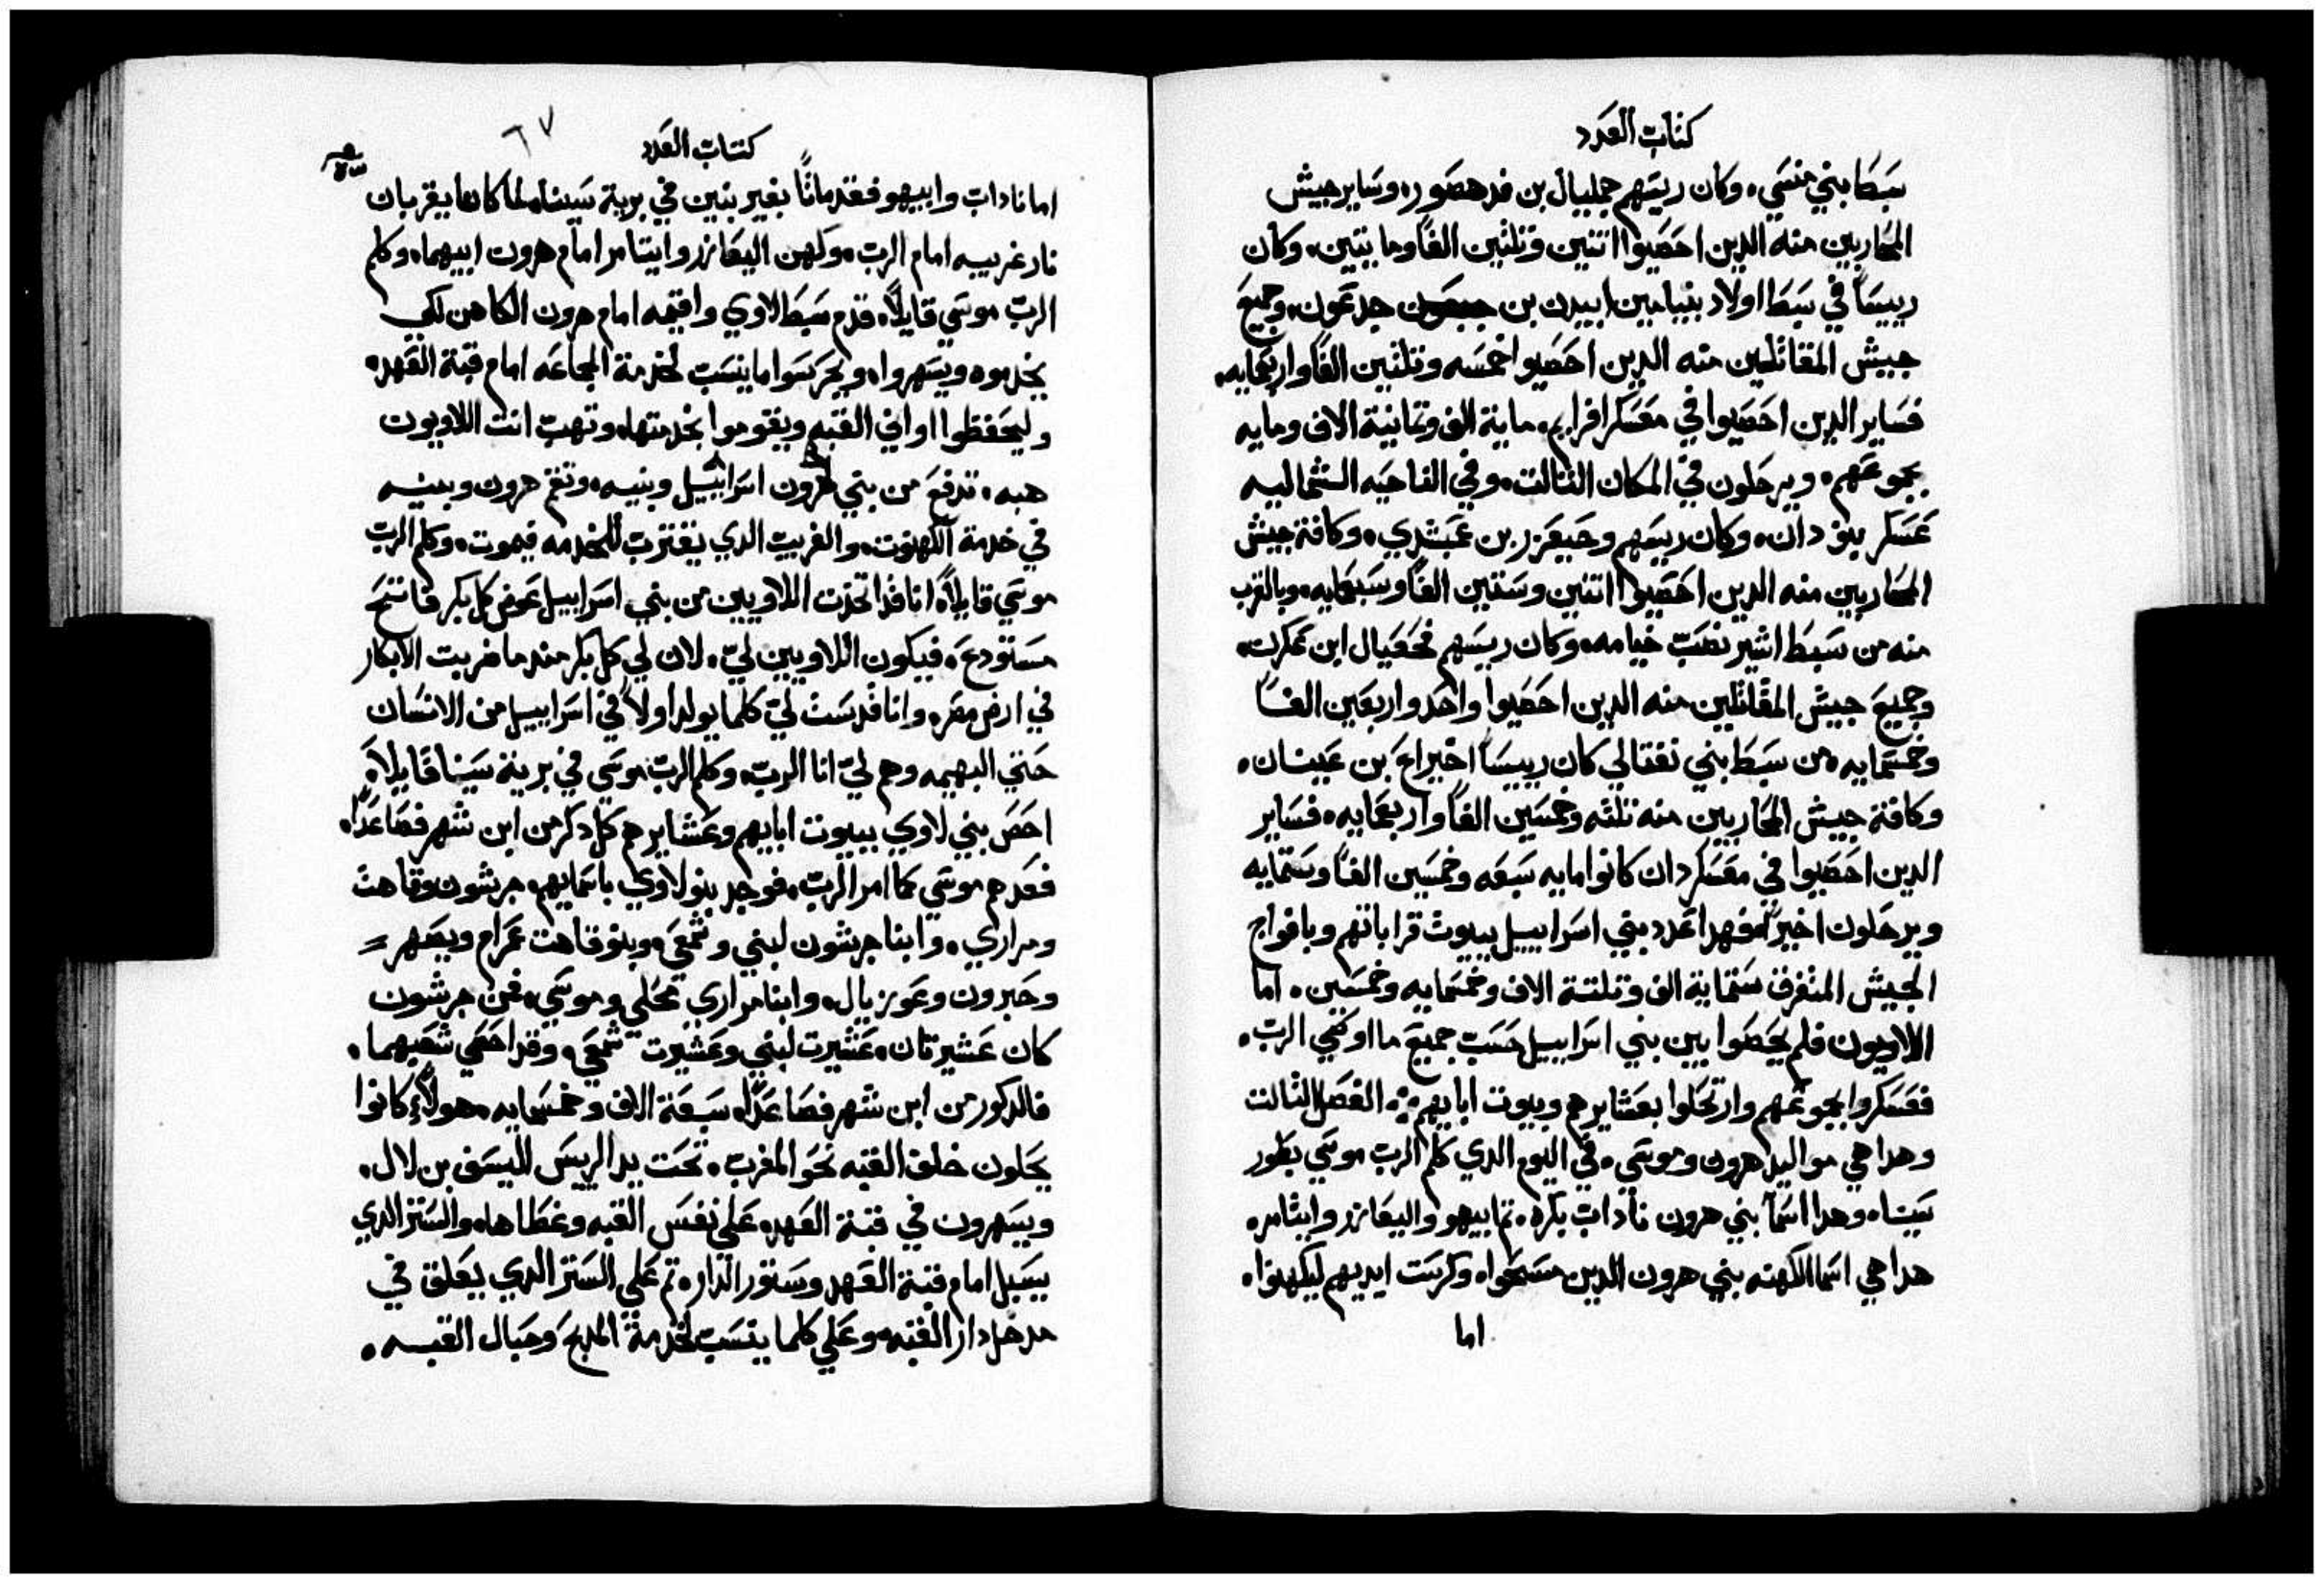 كتاب العدد
سبط بني منسي، وكان ريسهم جمليال بن فدهصور، وساير جيش
المحاربين منه الدين احصيوا اتنين وتلتين الفًا ومايتين، وكان
رييسًا في سبط اولاد بنيامين ابيدن بن جدعون، وجميع
جيش المقاتلين منه الدين احصيوا خمسه وتلتين الفًا واربعمايه،
فساير الدين احصيوا في معسكر افرايم، ماية الف وتمانية الاف ومايه
بجموعهم، ويرحلون في المكان التالت، وفي الناحيه الشماليه
عسكر بنو دان، وكان ريسهم وحيعزر بن عمشدي، وكافة جيش
المحاربين منه الدين احصيوا اتنين وستين الفًا وسبعمايه، وبالقرب
منه من سبط اشير نصب خيامه، وكان رييسهم فجعيال ابن عكرن،
وجميع جيش المقاتلين منه الدين احصيوا واحد واربعين الفًا
وخمسمايه، من سبط بني نفتالي كان رييسًا اخيراع بن عينان،
وكافة جيش المحاربين منه تلته وخمسين الفًا واربعمايه، فساير
الدين احصيوا في معسكر دان كانوا مايه سبعه وخمسين الفًا وستمايه
ويرحلون اخيرًا، فهدا عدد بني اسراييل ببيوت قراباتهم وبافواج
الجيش المتفرق ستماية الف وتلتة الاف وخمسمايه وخمسين، اما
اللاويون فلم يحصوا بين بني اسراييل حسب جميع ما اوصي الرب،
فعسكروا بجموعهم وارتحلوا بعشايرهم وبيوت ابايهم، الفصل التالت
وهدا هي مواليد هرون وموسي، في اليوم الدي كلم الرب موسي بطور
سينا، وهدا اسمآ بني هرون ناداب بكره، تم ابيهو واليعازر وايتامر،
هدا هي اسما الكهنه بني هرون الدين مسحوا، وكرست ايديهم ليكهنوا،
اما
كتاب العدد
٦٧
اما ناداب وابيهو فقد ماتًا بغير بنين في برية سينا، لما كانا يقربان
نار غريبه امام الرب، وكهن اليعازر وايتامر امام هرون ابيهما، وكلم
الرب موسي قايلًا، قدم سبط لاوي واقيمه امام هرون الكاهن لكي
يخدموه ويسهروا، ويحرسوا ما ينسب لخدمة الجماعه امام قبة العهد،
وليحفظوا اواني القبه ويقوموا بخدمتها، وتهب انت اللاويون
هبه، تدفع من بني اسراييل هرون وبنيه، وتقم هرون وبنيه
في خدمة الكهنوت، والغريب الدي يقترب للخدمه فيموت، وكلم الرب
موسي قايلًا، انا قد اتخدت اللاويين من بني اسراييل عوض كل بكر فاتح
مستودع، فيكون اللاويين لي، لان لي كل بكر مند ما ضربت الابكار
في ارض مصر، وانا قدست لي كلما يولد اولًا في اسراييل من الانسان
حتي البهيمه وهم لي انا الرب، وكلم الرب موسي في برية سينا قايلًا،
احص بني لاوي ببيوت ابايهم وعشايرهم كل دكر من ابن شهر فصاعدًا،
فعدهم موسي كما امر الرب، فوجد بنو لاوي باسمايهم، جرشون وقاهت
ومراري، وابنا جرشون لبني وشمعي، وبنو قاهت عمرام ويصهر =
وحبرون وعوزيال، وابنا مراري محلي وموسي، فمن جرشون
كان عشيرتان، عشيرت لبني وعشيرت شمعي، وقد احصي شعبهما،
فالدكور من ابن شهر فصاعدًا، سبعة الاف وخمسمايه، هولاء كانوا
يحلون خلف القبه نحو المغرب، تحت يد الرييس اليسف بن لال،
ويسهرون في قبة العهد، علي نفس القبه وغطاها، والستر الدي
يسبل امام قبة العهد وستور الدار، تم علي الستر الدي يعلق في
مدخل دار القبه، وعلي كلما ينسب لخدمة المدبح وحبال القبه،